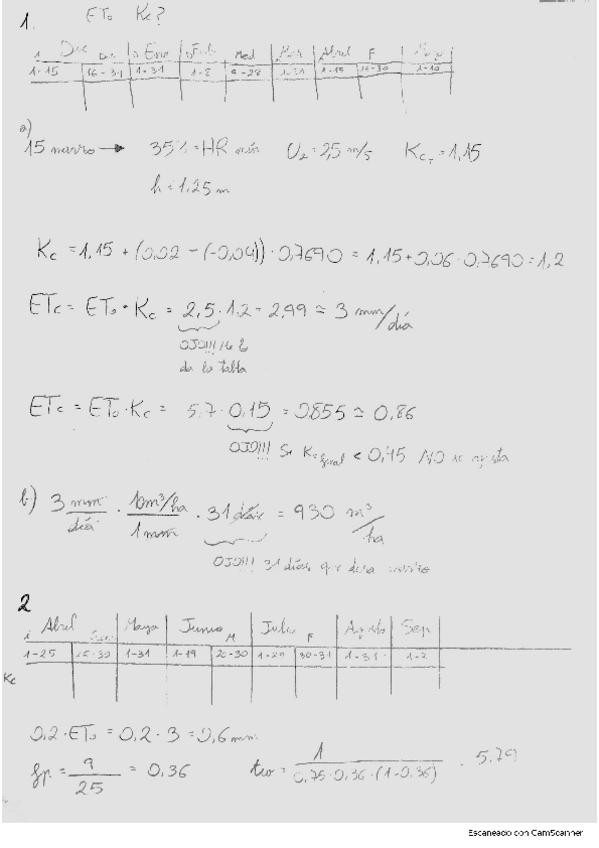 1. ETo Kc?
Dic Ene Feb Med Abril F
1-15 16-31 1-31 1-8 9-28 1-31 1-15 16-30 1-10
a)
15 marzo → 35% = HR mín U₂ = 2,5 m/s Kc = 1,15
h = 1,25 m
Kc = 1,15 + (0,02 - (-0,04)) · 0,7690 = 1,15 + 0,06 · 0,7690 = 1,2
ETc = ETo · Kc = 2,5 · 1,2 = 2,99 ≈ 3 mm/día
OJO!!!
da la tabla
ETc = ETo · Kc = 5,7 · 0,15 = 0,855 ≈ 0,86
OJO!!! Si Kc final < 0,45 NO se ajusta
b) 3 mm/día · 10 m³/ha / 1 mm · 31 días = 930 m³/ha
OJO!!! 31 días que dura
2
i Abril Mayo Junio M Julio F Agosto Sep
1-25 25-30 1-31 1-19 20-30 1-29 30-31 1-31 1-2
Kc
0,2 · ETo = 0,2 · 3 = 0,6 mm
fp = 9/25 = 0,36 = 1 / 0,75 · 0,36 · (1-0,36) · 5,79
Escaneado con CamScanner